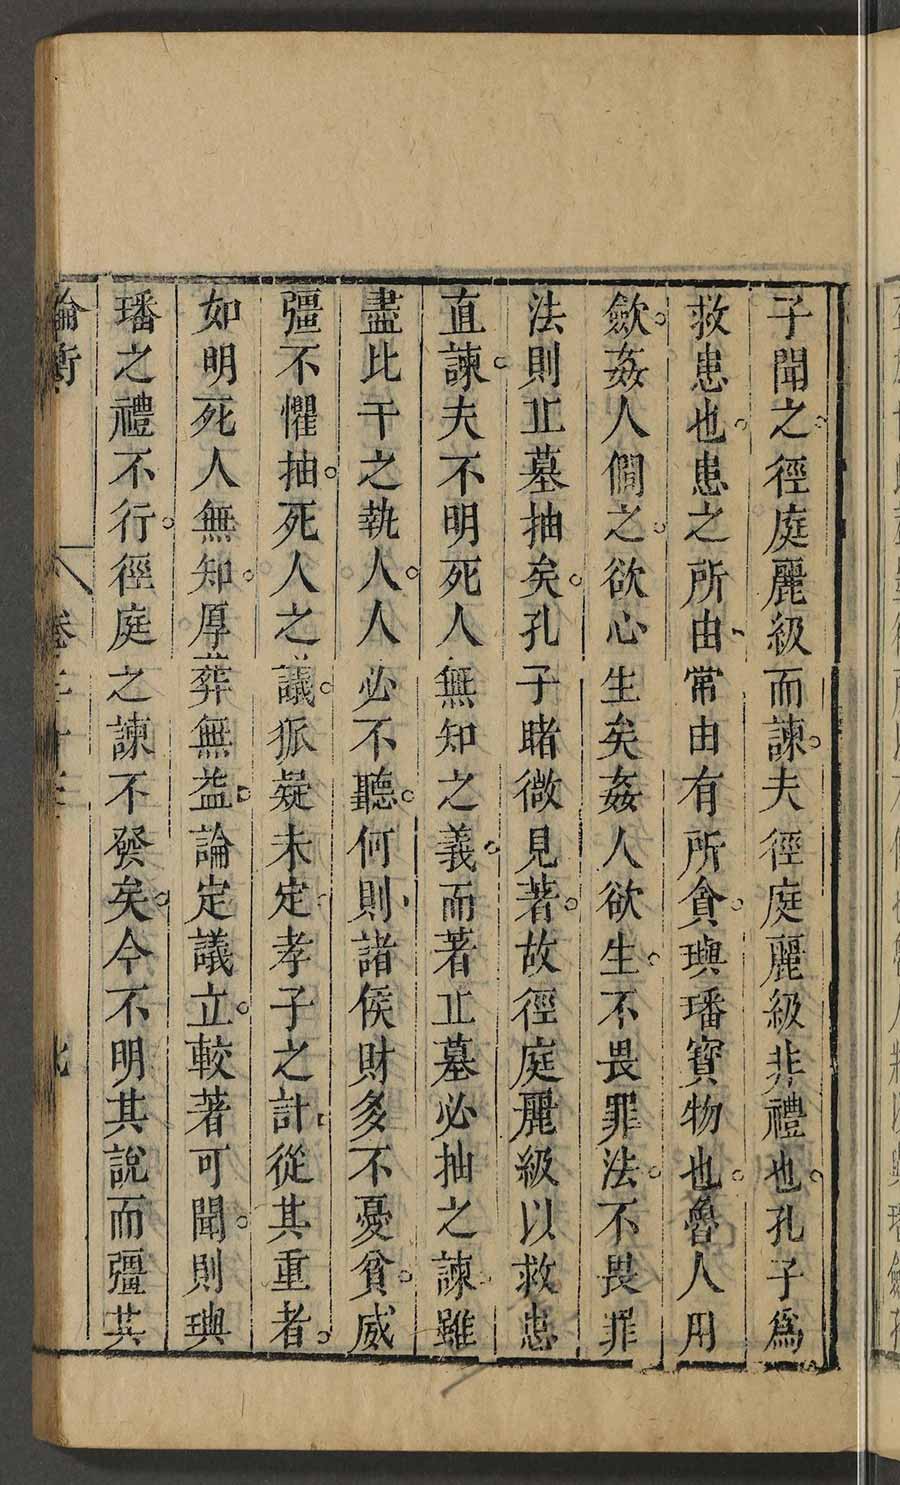 子聞之徑庭麗級而諫夫徑庭麗級非禮也孔子爲
救患也患之所由常由有所貪璵璠寶物也魯人用
歛姦人僩之欲心生矣姦人欲生不畏罪法不畏罪
法則丘墓抽矣孔子睹微見著故徑庭麗級以救患
直諫夫不明死人無知之義而著丘墓必抽之諫雖
盡比干之執人人必不聽何則諸侯財多不憂貧威
彊不懼抽死人之議狐疑未定孝子之計從其重者
如明死人無知厚葬無益論定議立較著可聞則璵
璠之禮不行徑庭之諫不發矣今不明其說而彊其
論衡 卷二十三